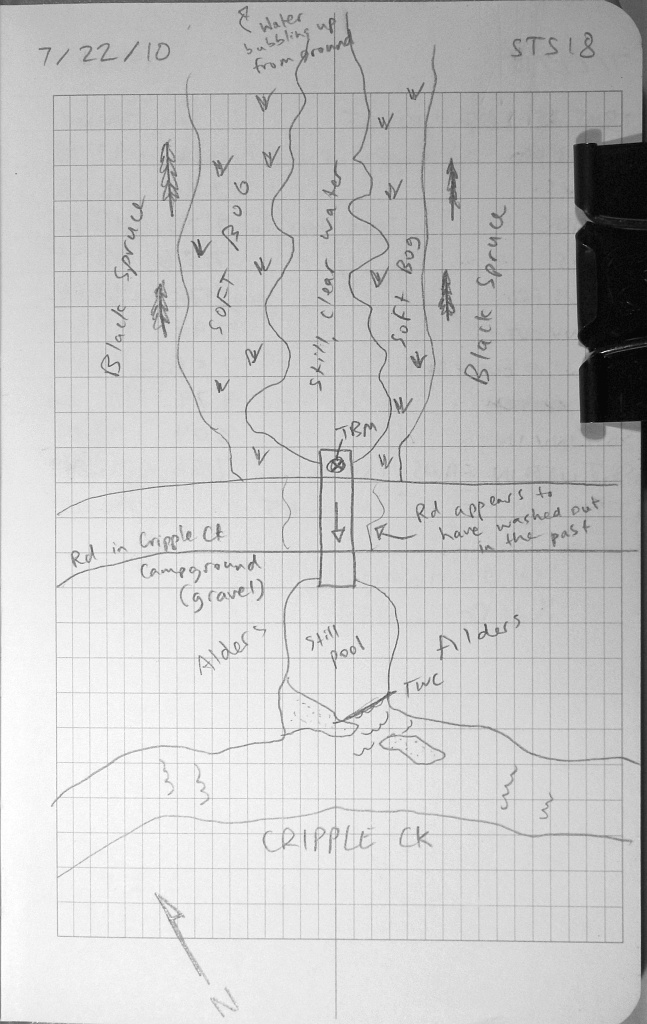 Water
bubbling up
from ground
7/22/10
STS18
Black Spruce
SOFT BOG
Still, clear water
Soft Bog
Black Spruce
TBM
Rd appears to
have washed out
in the past
Rd in Cripple Ck
Campground
(gravel)
Alders
Still
pool
Alders
TWC
CRIPPLE CK
N